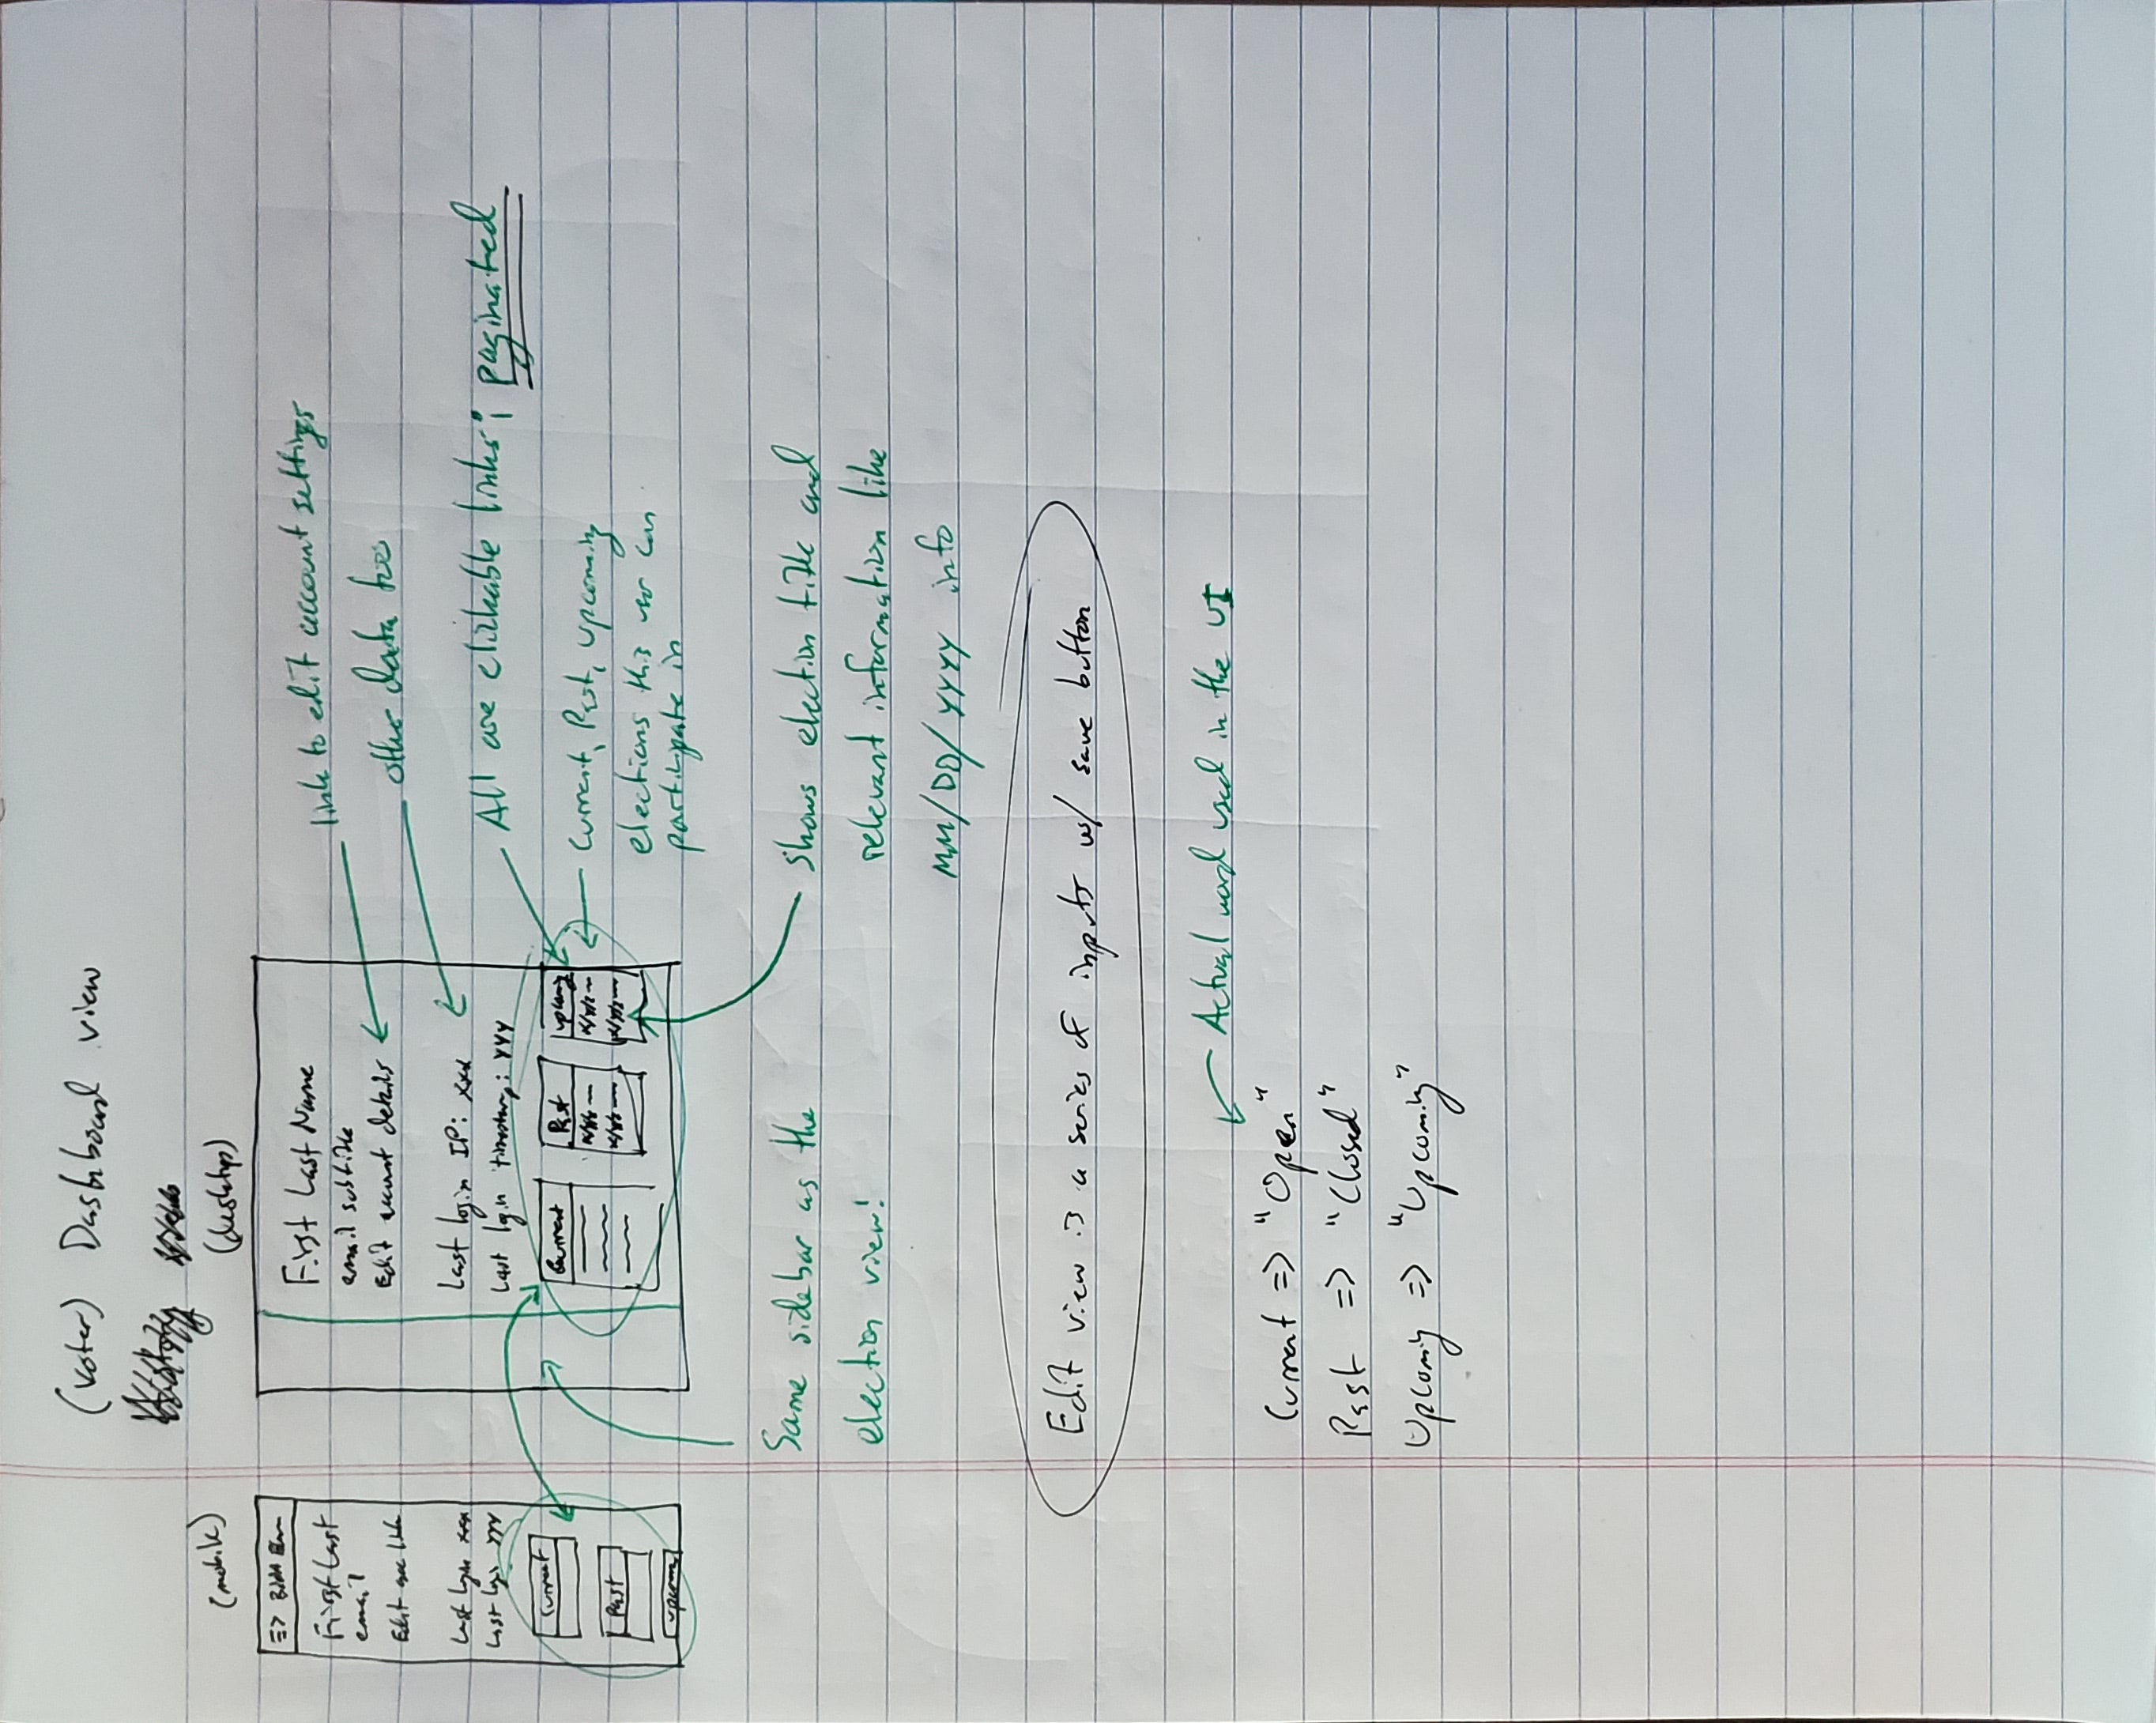 (voter) Dashboard view
(mobile)
(desktop)
=>
First Last
email
Edit acc link
Last login xxx
Last login yyy
Current
Past
Upcoming
First Last Name
email subtitle
Edit account details
Last login IP: xxx
Last login timestamp: yyy
Current
Past
x/y/z
x/y/z
Upcoming
x/y/z
x/y/z
link to edit account settings
other data too
All are clickable links; paginated
Current, Past, Upcoming
elections this user can
participate in
Same sidebar as the
election view!
Shows election title and
relevant information like
MM/DD/YYYY info
Edit view is a series of inputs w/ save button
Actual word used in the UI
Current => "Open"
Past => "Closed"
Upcoming => "Upcoming"